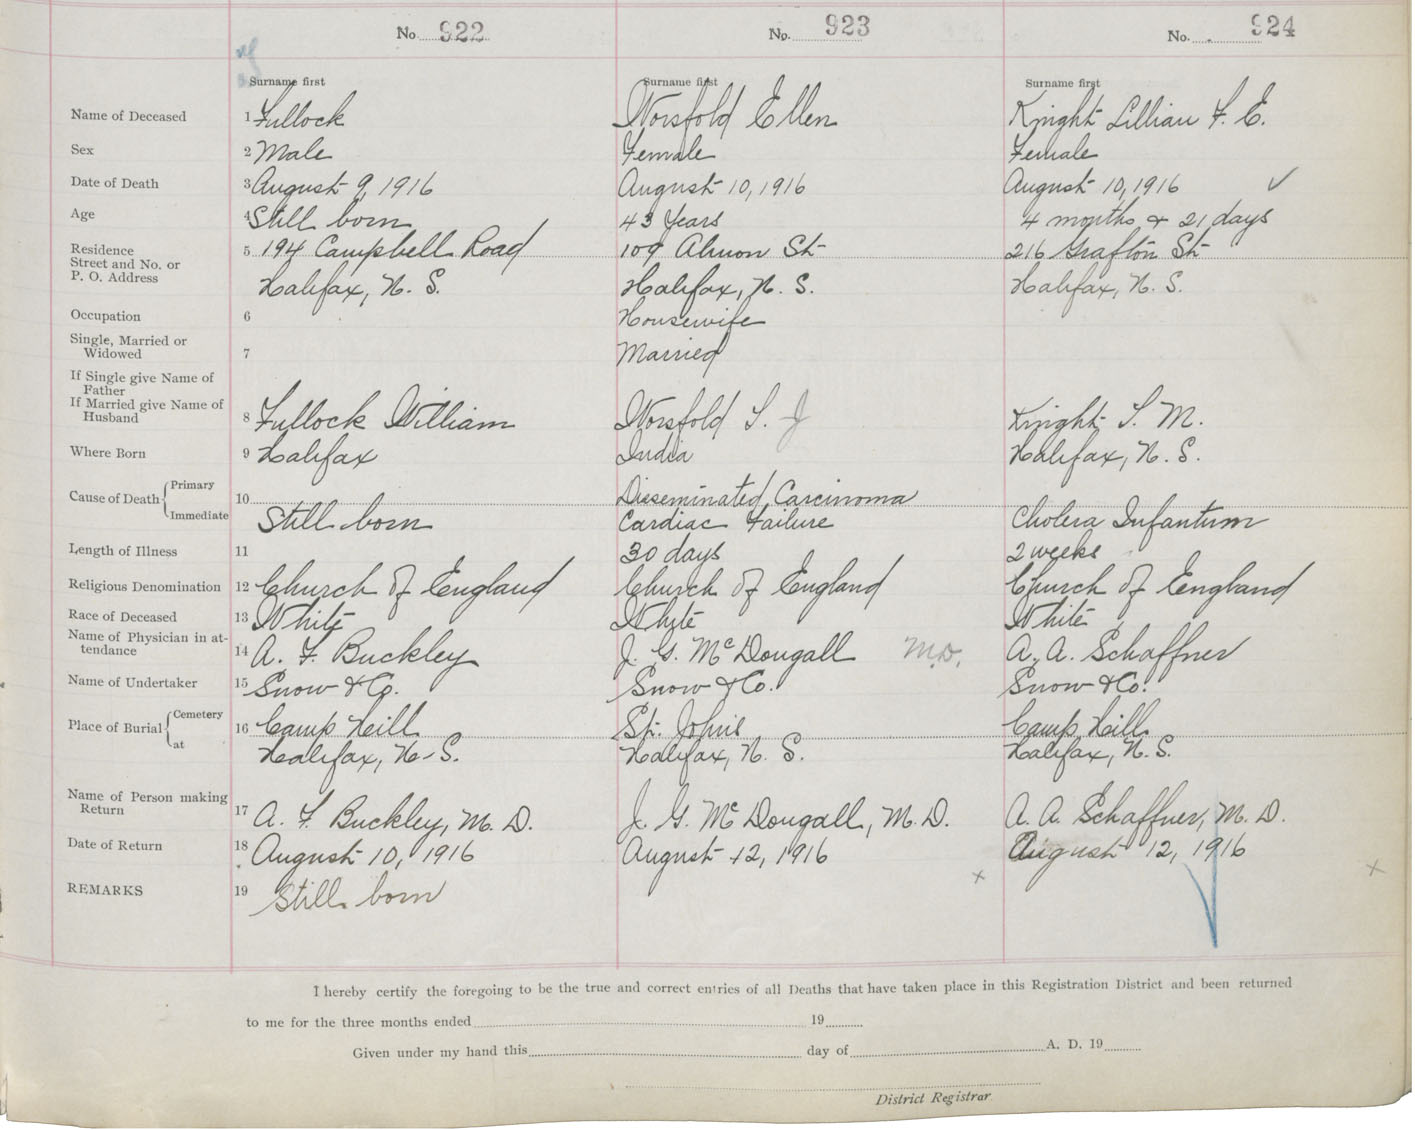 No. 922 No. 923 No. 924
Surname first Surname first Surname first
Name of Deceased 1 Fullock Worsfold Ellen Knight Lillian F. E.
Sex 2 Male Female Female
Date of Death 3 August 9, 1916 August 10, 1916 August 10, 1916 ✓
Age 4 Still born 43 Years 4 months & 21 days
Residence 5 194 Campbell Road 109 Almon St 216 Grafton St
Street and No. or
P. O. Address Halifax, N. S. Halifax, N. S. Halifax, N. S.
Occupation 6 Housewife
Single, Married or
Widowed 7 Married
If Single give Name of
Father
If Married give Name of
Husband 8 Fullock William Worsfold S. J Knight S. M.
Where Born 9 Halifax India Halifax, N. S.
Cause of Death Primary 10 Disseminated Carcinoma
Immediate Still born Cardiac Failure Cholera Infantum
Length of Illness 11 30 days 2 weeks
Religious Denomination 12 Church of England Church of England Church of England
Race of Deceased 13 White White White
Name of Physician in at-
tendance 14 A. F. Buckley J. G. McDougall M.D. A. A. Schaffner
Name of Undertaker 15 Snow & Co. Snow & Co. Snow & Co.
Place of Burial Cemetery 16 Camp Hill St. Johns Camp Hill
at Halifax, N-S. Halifax, N. S. Halifax, N. S.
Name of Person making
Return 17 A. F. Buckley, M. D. J. G. McDougall, M. D. A. A. Schaffner, M. D.
Date of Return 18 August 10, 1916 August 12, 1916 August 12, 1916
REMARKS 19 Still born x x
I hereby certify the foregoing to be the true and correct entries of all Deaths that have taken place in this Registration District and been returned
to me for the three months ended 19
Given under my hand this day of A. D. 19
District Registrar.